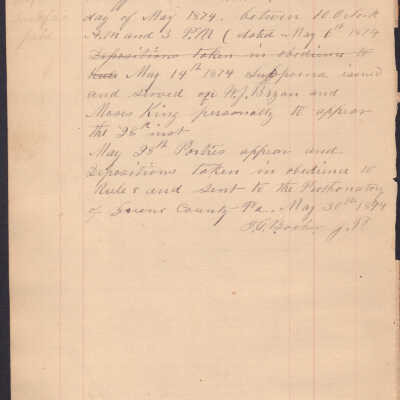 day of May 1874. betwen 10. Oclock
A.M and 3 P.M (dated May 6th 1874
Depositions taken in obedience to
Rule May 14th 1874 Suppoena issued
and served on W.J. Bryan and
Moses King personally to appear
the 28th inst
May 28th Parties appear and
Depositions taken in obedience to
Rule & and sent to the Prothonatory
of County Pa. May 30th 1874
J.P.